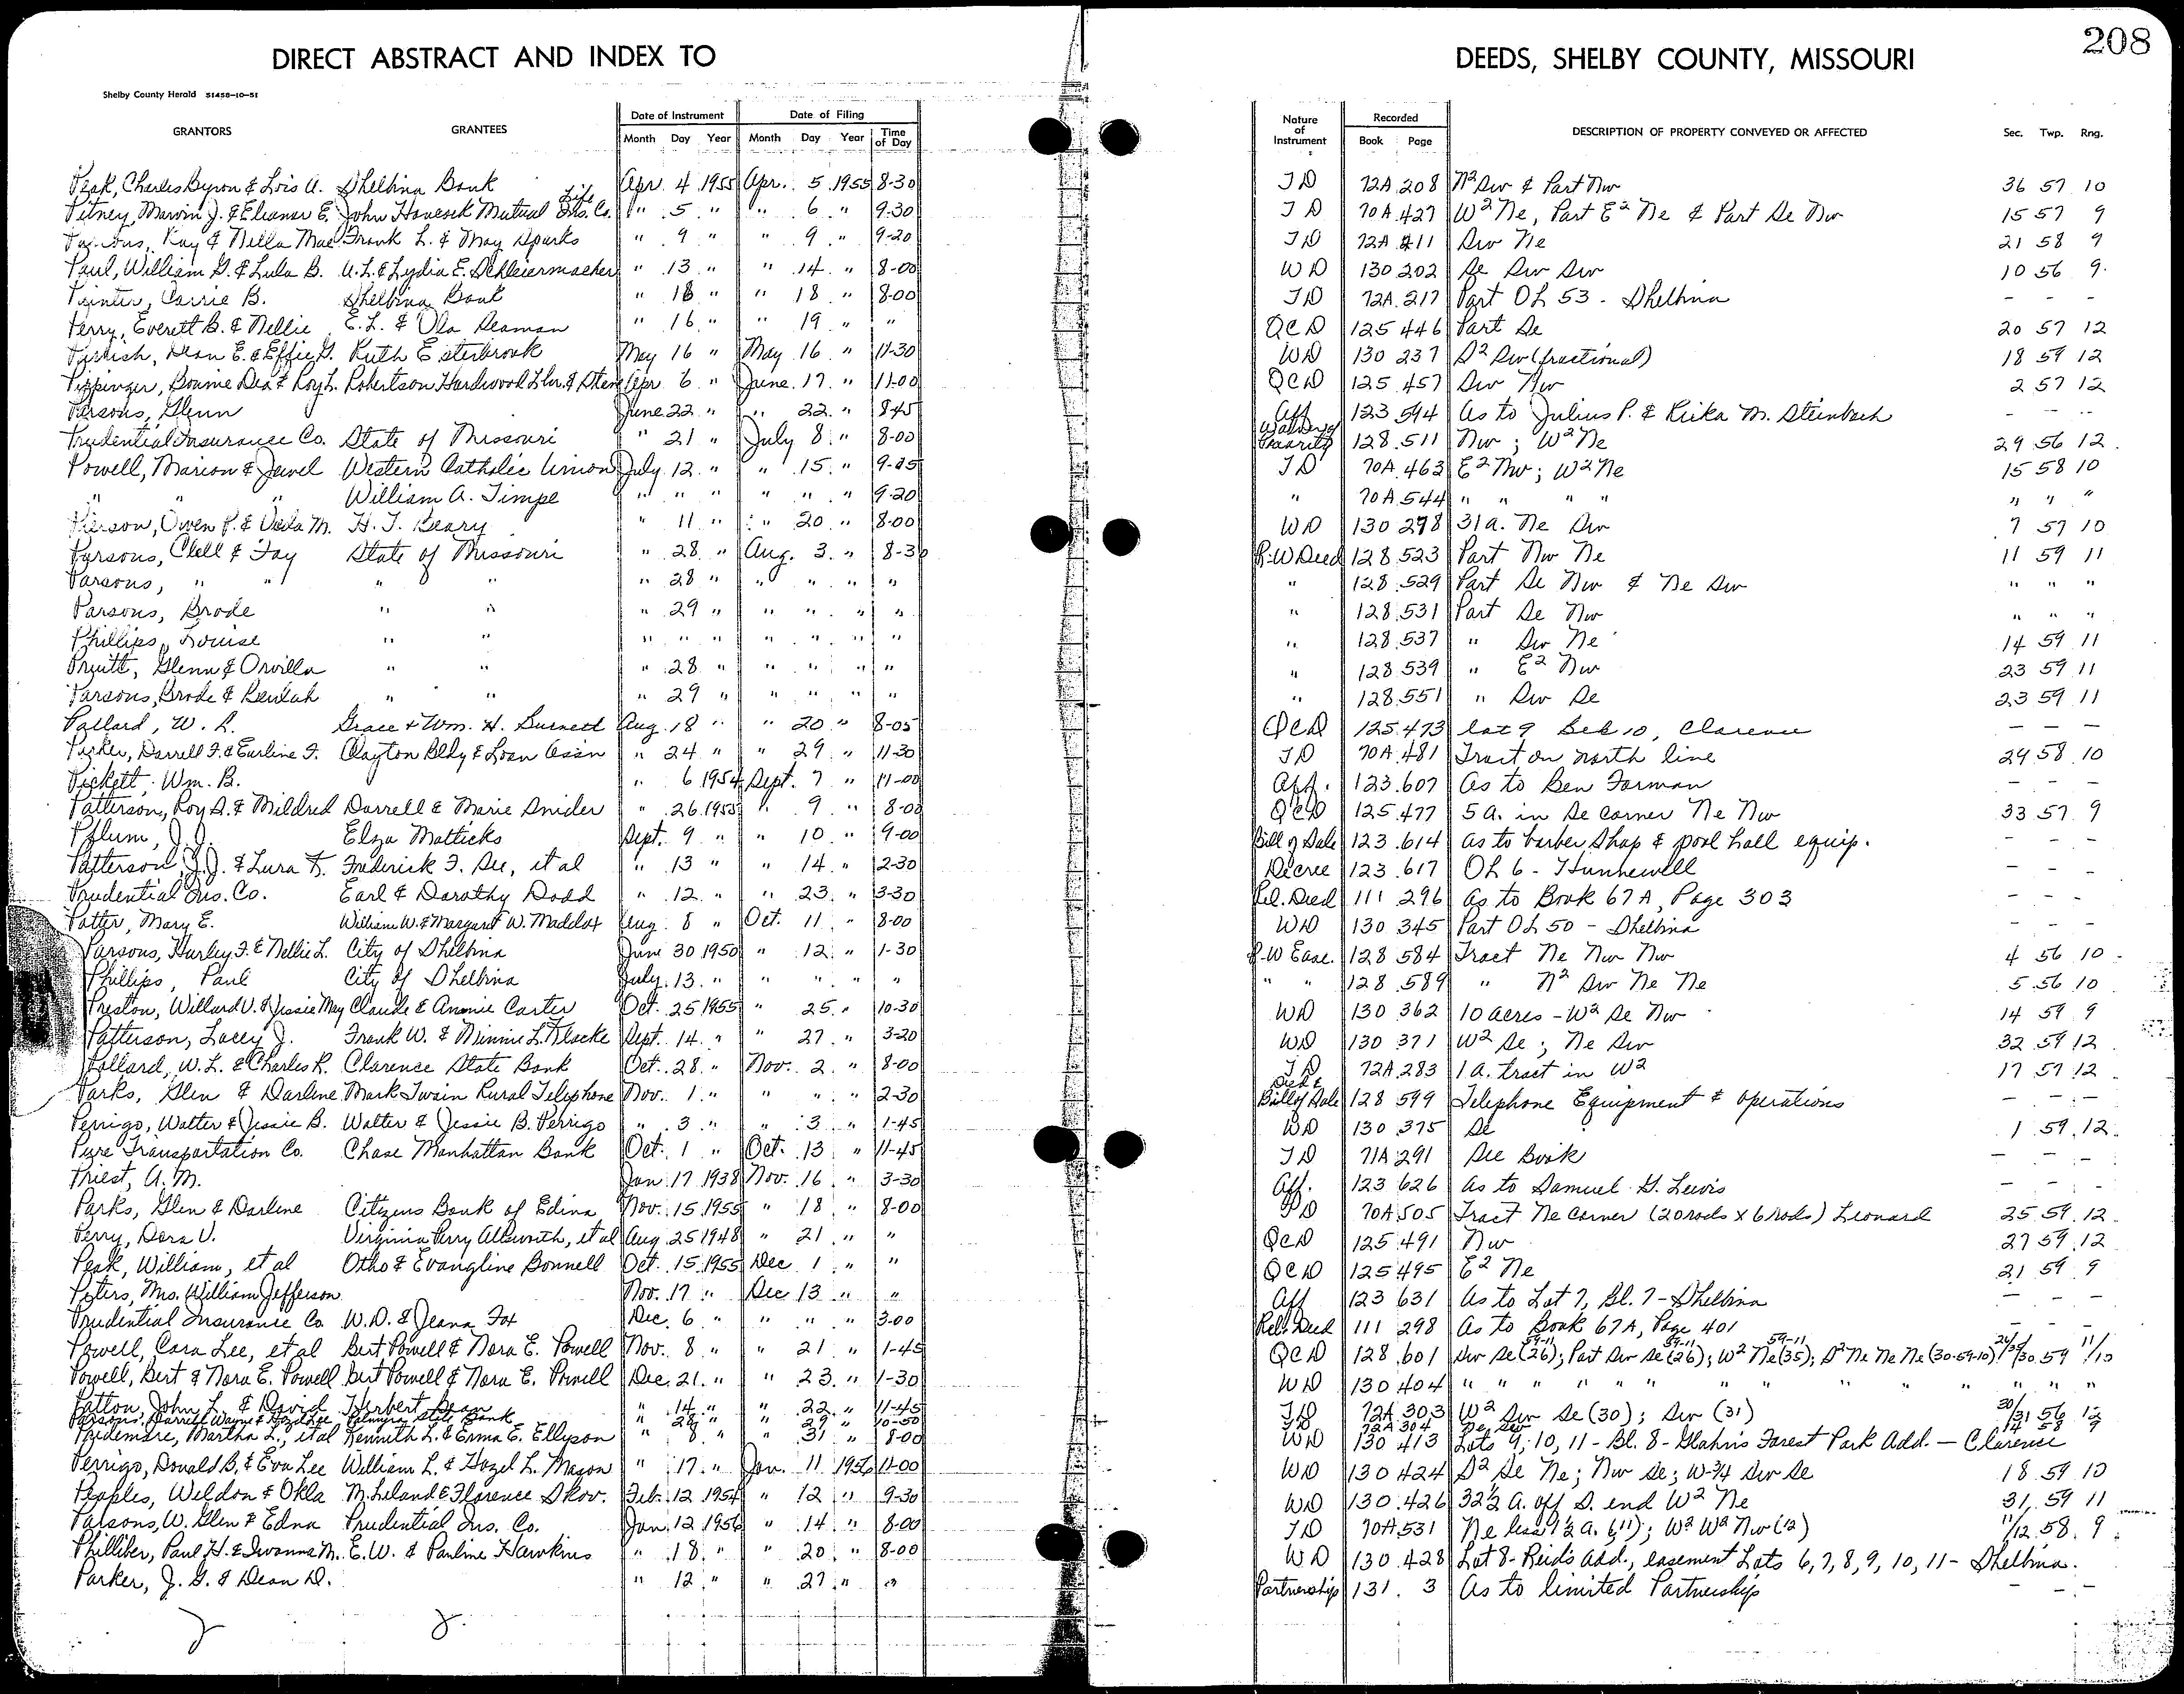 208
DIRECT ABSTRACT AND INDEX TO DEEDS, SHELBY COUNTY, MISSOURI
Shelby County Herald 51458-10-51
GRANTORS GRANTEES Date of Instrument Date of Filing Nature of Instrument Recorded DESCRIPTION OF PROPERTY CONVEYED OR AFFECTED Sec. Twp. Rng.
Month Day Year Month Day Year Time of Day Book Page
Peak, Charles Byron & Lois A. Shelbina Bank Apr. 4 1955 Apr. 5 1955 8-30 TD 72A 208 N² Sw & Part Nw 36 57 10
Pitney, Marvin J. & Eleanor E. John Hancock Mutual Life Ins. Co. " 5 " " 6 " 9-30 TD 70A 427 W² Ne, Part E² Ne & Part Se Nw 15 57 9
Ray & Nella Mae Frank L. & May Sparks " 9 " " 9 " 9-20 TD 72A 211 Sw Ne 21 58 9
Paul, William G. & Lula B. A. L. & Lydia E. Schleiermacher " 13 " " 14 " 8-00 WD 130 202 Se Sw Sw 10 56 9
Painter, Carrie B. Shelbina Bank " 18 " " 18 " 8-00 TD 72A 217 Part OL 53 - Shelbina - - -
Perry, Everett B. & Nellie E. L. & Ola Seaman " 16 " " 19 " " QCD 125 446 Part Se 20 57 12
Parrish, Dean E. & Effie G. Ruth Esterbrook May 16 " May 16 " 11-30 WD 130 237 S² Sw (fractional) 18 59 12
Pippinger, Bonnie Dea & Roy L. Robertson Hardwood Lbr. & Stave Apr. 6 " June 17 " 11-00 QCD 125 457 Sw Nw 2 57 12
Parsons, Glenn June 22 " " 22 " 8-45 Aff 123 594 As to Julius P. & Rieka M. Steinbach - - -
Prudential Insurance Co. State of Missouri " 21 " July 8 " 8-00 Waiver of Priority 128 511 Nw ; W² Ne 29 56 12
Powell, Marion & Jewel Western Catholic Union July 12 " " 15 " 9-15 TD 70A 463 E² Nw; W² Ne 15 58 10
" " " William A. Timpe " " " " " " 9-20 " 70A 544 " " " " " " "
Pierson, Owen P. & Veda M. H. T. Beary " 11 " " 20 " 8-00 WD 130 278 31 a. Ne Sw 7 57 10
Parsons, Clell & Fay State of Missouri " 28 " Aug. 3 " 8-30 R-W Deed 128 523 Part Nw Ne 11 59 11
Parsons, " " " " " 28 " " " " " " 128 529 Part Se Nw & Ne Sw " " "
Parsons, Brode " " " 29 " " " " " " 128 531 Part Se Nw " " "
Phillips, Louise " " " " " " " " " " 128 537 " Sw Ne 14 59 11
Pruitt, Glenn & Orvilla " " " 28 " " " " " " 128 539 " E² Nw 23 59 11
Parsons, Brode & Beulah " " " 29 " " " " " " 128 551 " Sw Se 23 59 11
Pollard, W. L. Grace & Wm. H. Burnett Aug. 18 " " 20 " 8-05 QCD 125 473 Lot 9 Blk 10, Clarence - - -
Parker, Darrell F. & Earline F. Clayton Bldg & Loan Assn " 24 " " 29 " 11-30 TD 70A 481 Tract on north line 24 58 10
Pickett, Wm. B. " 6 1954 Sept. 7 " 11-00 Aff. 123 607 As to Ben Forman - - -
Patterson, Roy S. & Mildred Darrell & Marie Snider " 26 1955 " 9 " 8-00 QCD 125 477 5 a. in Se corner Ne Nw 33 57 9
Pflum, J. J. Elza Matticks Sept. 9 " " 10 " 9-00 Bill of Sale 123 614 As to barber Shop & pool hall equip. - - -
Patterson, J. J. & Lura K. Frederick F. See, et al " 13 " " 14 " 2-30 Decree 123 617 OL 6 - Hunnewell - - -
Prudential Ins. Co. Earl & Dorothy Dodd " 12 " " 23 " 3-30 Rel. Deed 111 296 As to Book 67A, Page 303 - - -
Potter, Mary E. William W. & Margaret W. Maddox Aug. 8 " Oct. 11 " 8-00 WD 130 345 Part OL 50 - Shelbina - - -
Parsons, Hurley F. & Nellie L. City of Shelbina June 30 1950 " 12 " 1-30 R-W Ease. 128 584 Tract Ne Nw Nw 4 56 10
Phillips, Paul City of Shelbina July 13 " " " " " " " 128 589 " N² Sw Ne Ne 5 56 10
Preston, Willard V. & Jessie May Claude & Annie Carter Oct. 25 1955 " 25 " 10-30 WD 130 362 10 acres - W² Se Nw 14 59 9
Patterson, Lacey J. Frank W. & Minnie L. Klocke Sept. 14 " " 27 " 3-20 WD 130 371 W² Se ; Ne Sw 32 59 12
Pollard, W. L. & Charles R. Clarence State Bank Oct. 28 " Nov. 2 " 8-00 TD 72A 283 1 a. tract in W² 17 57 12
Parks, Glen & Darlene Mark Twain Rural Telephone Nov. 1 " " " " 2-30 Deed & Bill of Sale 128 599 Telephone Equipment & operations - - -
Perrigo, Walter & Jessie B. Walter & Jessie B. Perrigo " 3 " " 3 " 1-45 WD 130 375 Se 1 59 12
Pure Transportation Co. Chase Manhattan Bank Oct. 1 " Oct. 13 " 11-45 TD 71A 291 See Book - - -
Priest, A. M. Jan. 17 1938 Nov. 16 " 3-30 Aff. 123 626 As to Samuel G. Lewis - - -
Parks, Glen & Darlene Citizens Bank of Edina Nov. 15 1955 " 18 " 8-00 TD 70A 505 Tract Ne Corner (20 rods x 6 rods) Leonard 25 59 12
Perry, Dora V. Virginia Perry Allsworth, et al Aug. 25 1948 " 21 " " QCD 125 491 Nw 27 59 12
Peak, William, et al Otho & Evangline Bonnell Oct. 15 1955 Dec 1 " " QCD 125 495 E² Ne 21 59 9
Peters, Mrs. William Jefferson Nov. 17 " Dec 13 " " Aff 123 631 As to Lot 7, Bl. 7 - Shelbina - - -
Prudential Insurance Co W. D. & Jeana Fox Dec. 6 " " " " 3-00 Rel. Deed 111 298 As to Book 67A, Page 401 - - -
Powell, Cora Lee, et al Bert Powell & Nora E. Powell Nov. 8 " " 21 " 1-45 QCD 128 601 Sw Se (26) 59-11; Part Sw Se (26) 59-11; W² Ne (35) 59-11; S² Ne Ne Ne (30-59-10) 26/35/30 59 11/10
Powell, Bert & Nora E. Powell Bert Powell & Nora E. Powell Dec. 21 " " 23 " 1-30 WD 130 404 " " " " " " " " " " " " "
Patton, John L. & David Herbert Bean " 14 " " 22 " 11-45 TD 72A 303 W² Sw Se (30); Sw (31) 30/31 56 12
Parsons, Darrell Wayne & Hazel Lee Palmyra State Bank " 28 " " 29 " 10-50 TD 72A 304 Se Sw 14 58 9
Pridemore, Martha L., et al Kenneth L. & Erma E. Ellyson " 8 " " 31 " 8-00 WD 130 413 Lots 9, 10, 11 - Bl. 8 - Glahn's Forest Park Add. - Clarence
Perrigo, Donald B. & Eva Lee William L. & Hazel L. Magon " 17 " Jan. 11 1956 11-00 WD 130 424 S² Se Ne; Nw Se; W-3/4 Sw Se 18 59 10
Peoples, Weldon & Okla M. Leland & Florence Skov. Feb. 12 1954 " 12 " 9-30 WD 130 426 32½ A. off S. end W² Ne 31 59 11
Parsons, W. Glen & Edna Prudential Ins. Co. Jan. 12 1956 " 14 " 8-00 TD 70A 531 Ne less 1½ a. (11); W² W² Nw (12) 11/12 58 9
Philliber, Paul H. & Iwanna M. E. W. & Pauline Hawkins " 18 " " 20 " 8-00 WD 130 428 Lot 8 - Reid's Add., easement Lots 6, 7, 8, 9, 10, 11 - Shelbina.
Parker, J. G. & Dean D. " 12 " " 27 " " Partnership 131 3 As to limited Partnership - - -